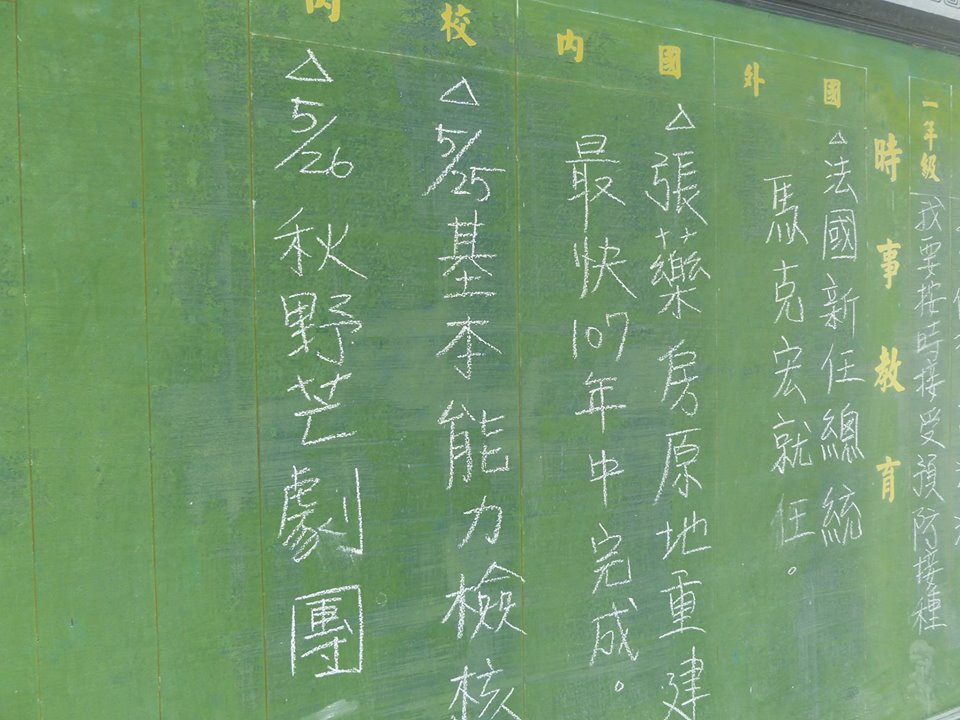 一年級
我要按時接受預防接種
時事教育
國外
△法國新任總統
馬克宏就任。
國內
△張藥房原地重建
最快107年中完成。
校內
△5/25基本能力檢核
△5/26秋野芒劇團